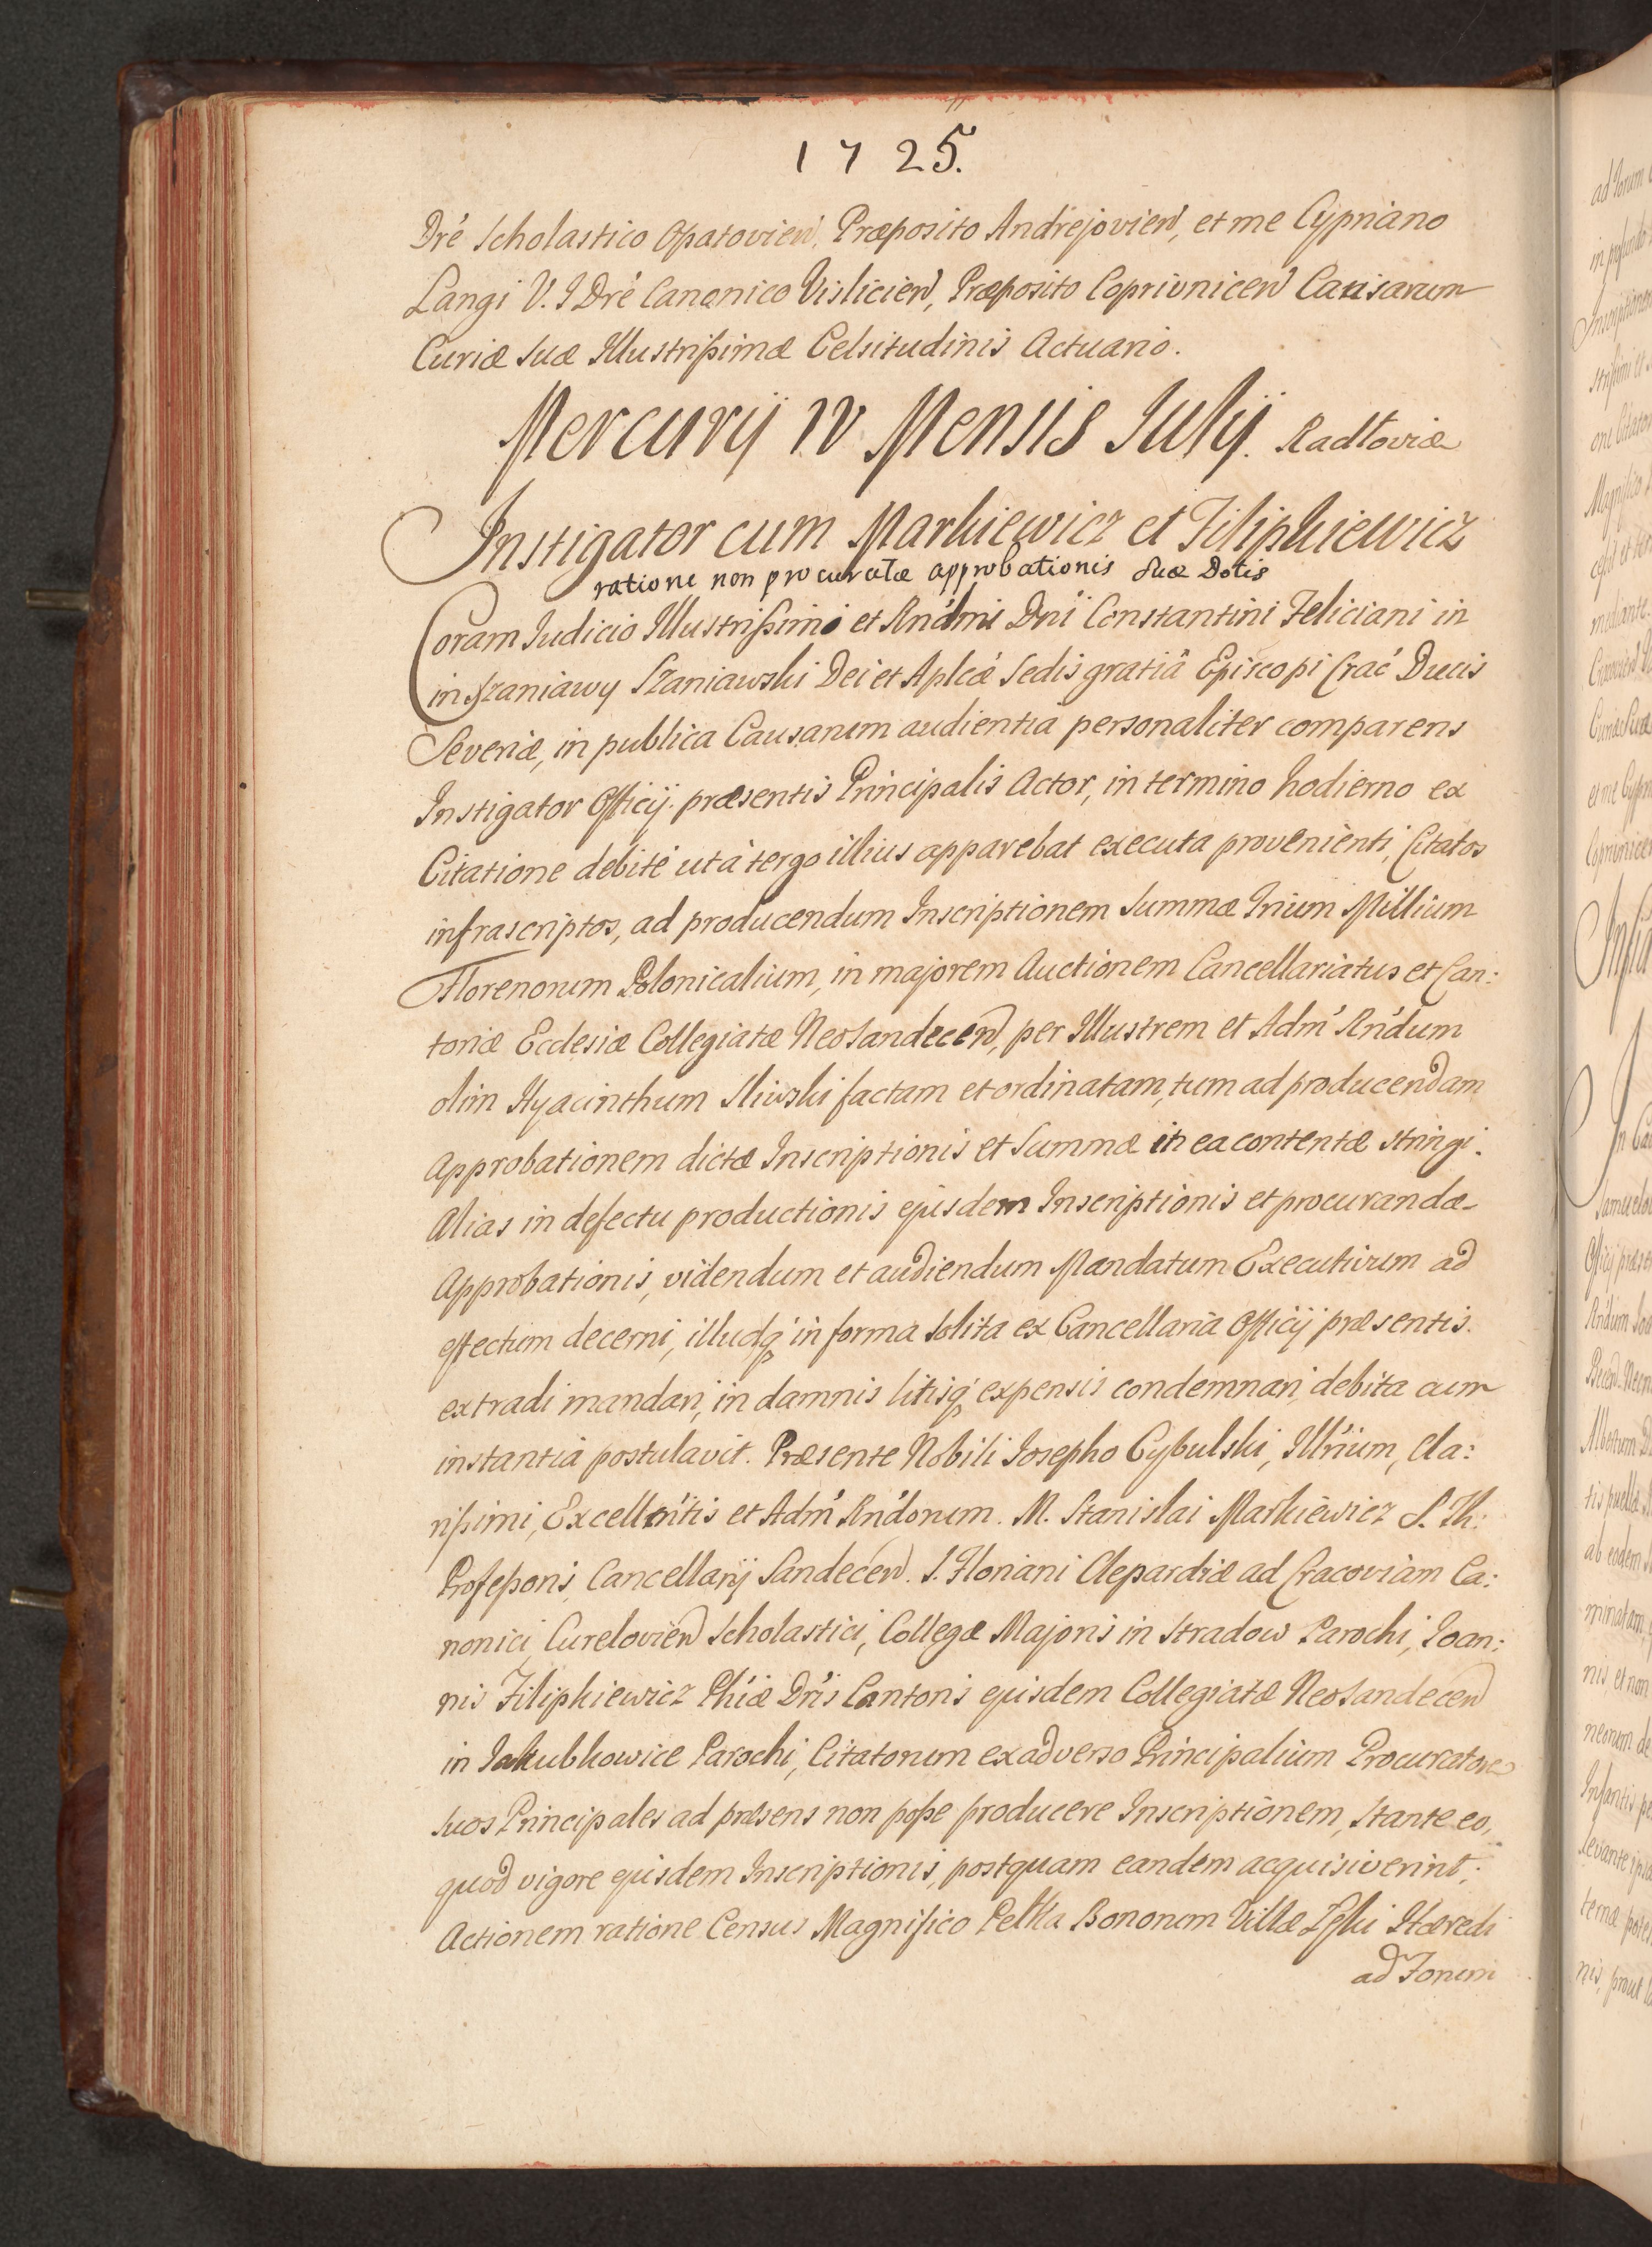 1725.
Dré Scholastico Opatovień, Præposito Andrejovień, et me Cypriano
Langi V. I Dré Canonico Vislicień, Præposito Coprivniceń Causarum
Curiæ Suæ Illustrißimæ Celsitudinis Actuario.
Mercurij IV Mensis Julij. Radłoviæ
Instigator cum Markiewicz et Filipkiewicz
ratione non procuratæ approbationis suæ Dotis
Coram Iudicio Illustrißimi et Rńdmi Dńi Constantini Feliciani in
in Szaniawy Szaniawski Dei et Aplcæ Sedis gratiâ Episcopi Crać Ducis
Severiæ, in publica Causarum audientia personaliter comparens
Instigator Officij præsentis Principalis Actor, in termino hodierno ex
Citatione debitè ut à tergo illius apparebat executa provenienti, Citatos
infrascriptos, ad producendum Inscriptionem Summæ Trium Millium
Florenorum Polonicalium, in majorem Auctionem Cancellariatus et Can:
toriæ Ecclesiæ Collegiatæ NeoSandeceń, per Illustrem et Adm̃ Rńdum
olim Hyacinthum Sliwski factam et ordinatam, tum ad producendam
Approbationem dictæ Inscriptionis et Summæ in ea contentæ stringi.
Alias in defectu productionis ejusdem Inscriptionis et procurandæ
Approbationis, videndum et audiendum Mandatum Executivum ad
effectum decerni, illudq́ in forma solita ex Cancellaria Officij præsentis
extradi mandari, in damnis litisq́ expensis condemnari, debita cum
instantia postulavit. Præsente Nobili Iosepho Cybulski, Illrium, Cla:
rißimi, Excellńtis et Adm̃ Rńdorum. M. Stanislai Markiewicz S. Th:
Profeßoris, Cancellarij Sandeceń. S. Floriani Clepardiæ ad Cracoviam Ca:
nonici, Curelovień Scholastici, Collegæ Majoris in Stradow Parochi, Ioan:
nis Filipkiewicz Phiæ Dris Cantoris ejusdem Collegiatæ NeoSandeceń
in Jakubkowice Parochi, Citatorum ex adverso Principalium Procuratore
suos Principales ad præsens non poße producere Inscriptionem, Stante eo,
quod vigore ejusdem Inscriptionis, postquam eandem acquisiverint,
Actionem ratione Census Magnifico Pełka Bonorum Villæ Hæredi
ad Forum